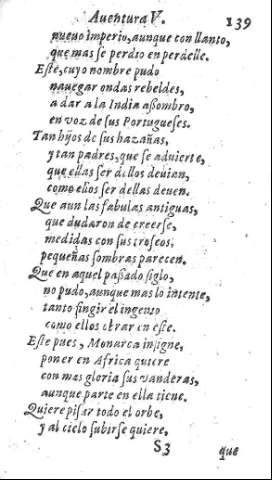 Auentura V. 139
nueuo imperio, aunque con llanto,
que mas se perdio en perdelle.
Este, cuyo nombre pudo
nauegar ondas rebeldes,
a dar a la India assombro,
en voz de sus Portugueses.
Tan hijos de sus hazañas,
y tan padres, que se aduierte,
que ellas ser dellos deuian,
como ellos ser dellas deuen.
Que aun las fabulas antiguas,
que dudaron de creerse,
medidas con sus trofeos,
pequeñas sombras parecen.
Que en aquel passado siglo,
no pudo, aunque mas lo intente,
tanto fingir el ingenio
como ellos obrar en este.
Este pues, Monarca insigne,
poner en Africa quiere
con mas gloria sus vanderas,
aunque parte en ella tiene.
Quiere pisar todo el orbe,
y al cielo subirse quiere,
S3 que